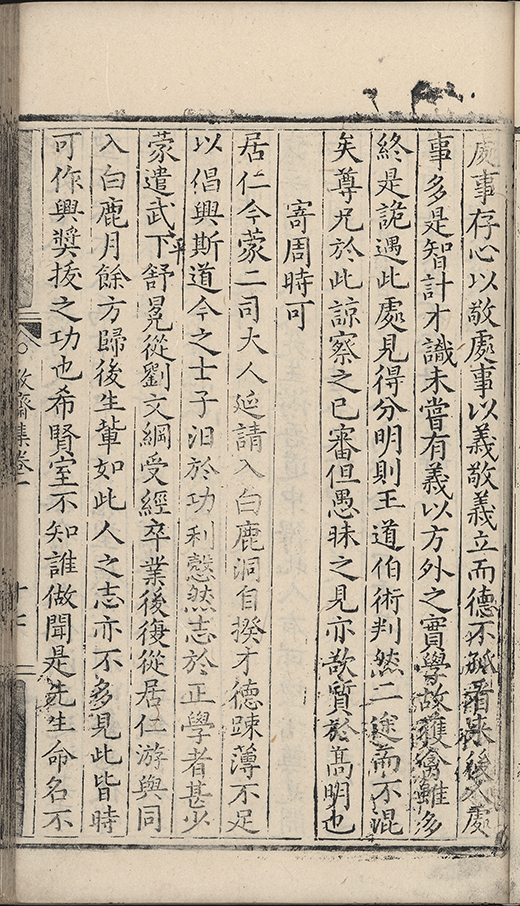 處事存心以敬處事以義敬義立而德不孤者來後人處
事多是智計才識未嘗有義以方外之實學故獲禽雖多
終是詭遇此處見得分明則王道伯術判然二途而不混
矣尊兄於此諒察之已審但愚昧之見亦欲質於高明也
寄周時可
居仁今蒙二司大人延請入白鹿洞自揆才德踈薄不足
以倡興斯道今之士子汨於功利慤然志於正學者甚少
蒙遣武平下舒冕從劉文綱受經卒業後復從居仁游與同
入白鹿月餘方歸後生輩如此人之志亦不多見此皆時
可作興奬拔之功也希賢室不知誰做聞是先生命名不
敬齋集卷一